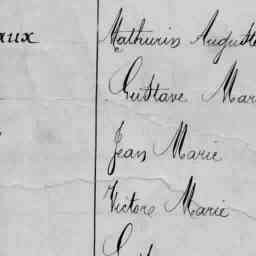 aux Mathurin Auguste
Gustave Mar
Jean Marie
Victore Marie